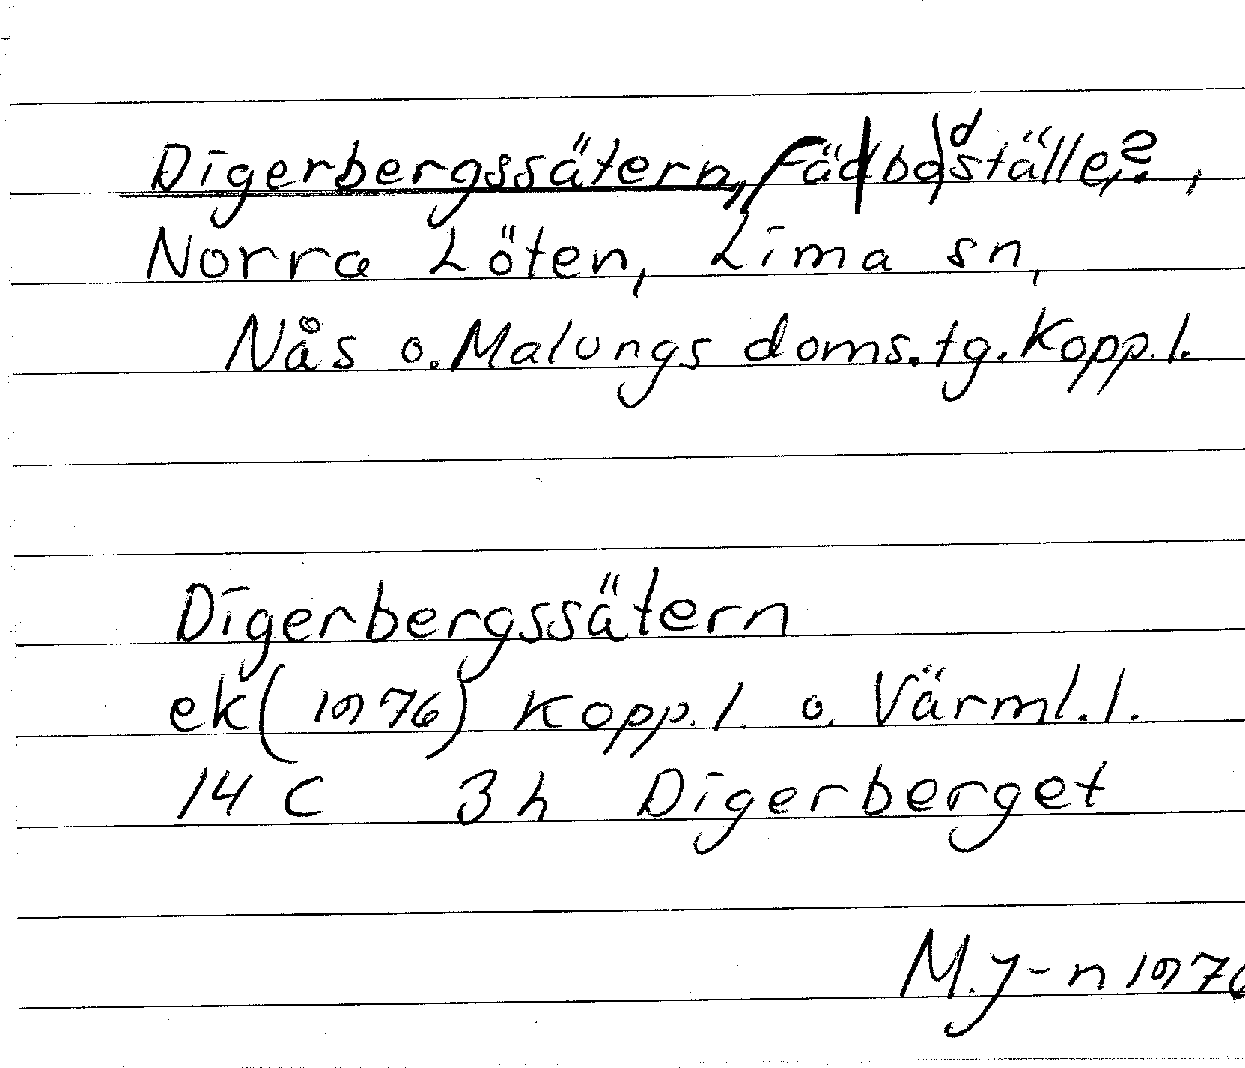 Digerbergssätern, Fädbodställe,?,
Norra Löten, Lima sn,
Nås o. Malungs doms.tg. Kopp.l.
Digerbergssätern
ek (1976) Kopp.l. o. Värml.l.
14 C 3 h Digerberget
M.J-n 1976